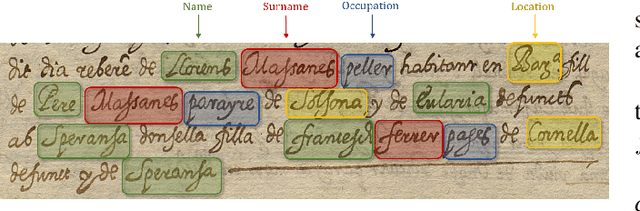 Name Surname Occupation Location
dit dia rebere de Llorens Massanes peller habitant en Bar.ª fill
de Pere Massanes parayre de Solsona y de Eularia defuncts
ab Speransa donsella filla de francesch ferrer pages de Cornella
defunct y de Speransa